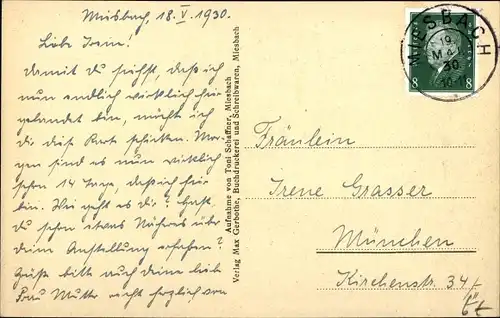 Miesbach, 18. V. 1930.
Liebe Irene!
Damit du siehst, daß ich
nun endlich wirklich hier
gelandet bin, möcht ich
dir diese Karte schicken. Mor-
gen sind es nun wirklich
schon 14 Tage, daß ich hier
bin. Wie geht es dir? Hast
du schon etwas Näheres über
deine Anstellung erfahren?
Grüße bitte auch deine liebe
Frau Mutter recht herzlich von
Aufnahme von Toni Schaffner, Miesbach
Verlag Max Gerbothe, Buchdruckerei und Schreibwaren, Miesbach
MIESBACH
19
MAI
30
8 8
Fräulein
Irene Grasser
München
Kirchenstr. 34